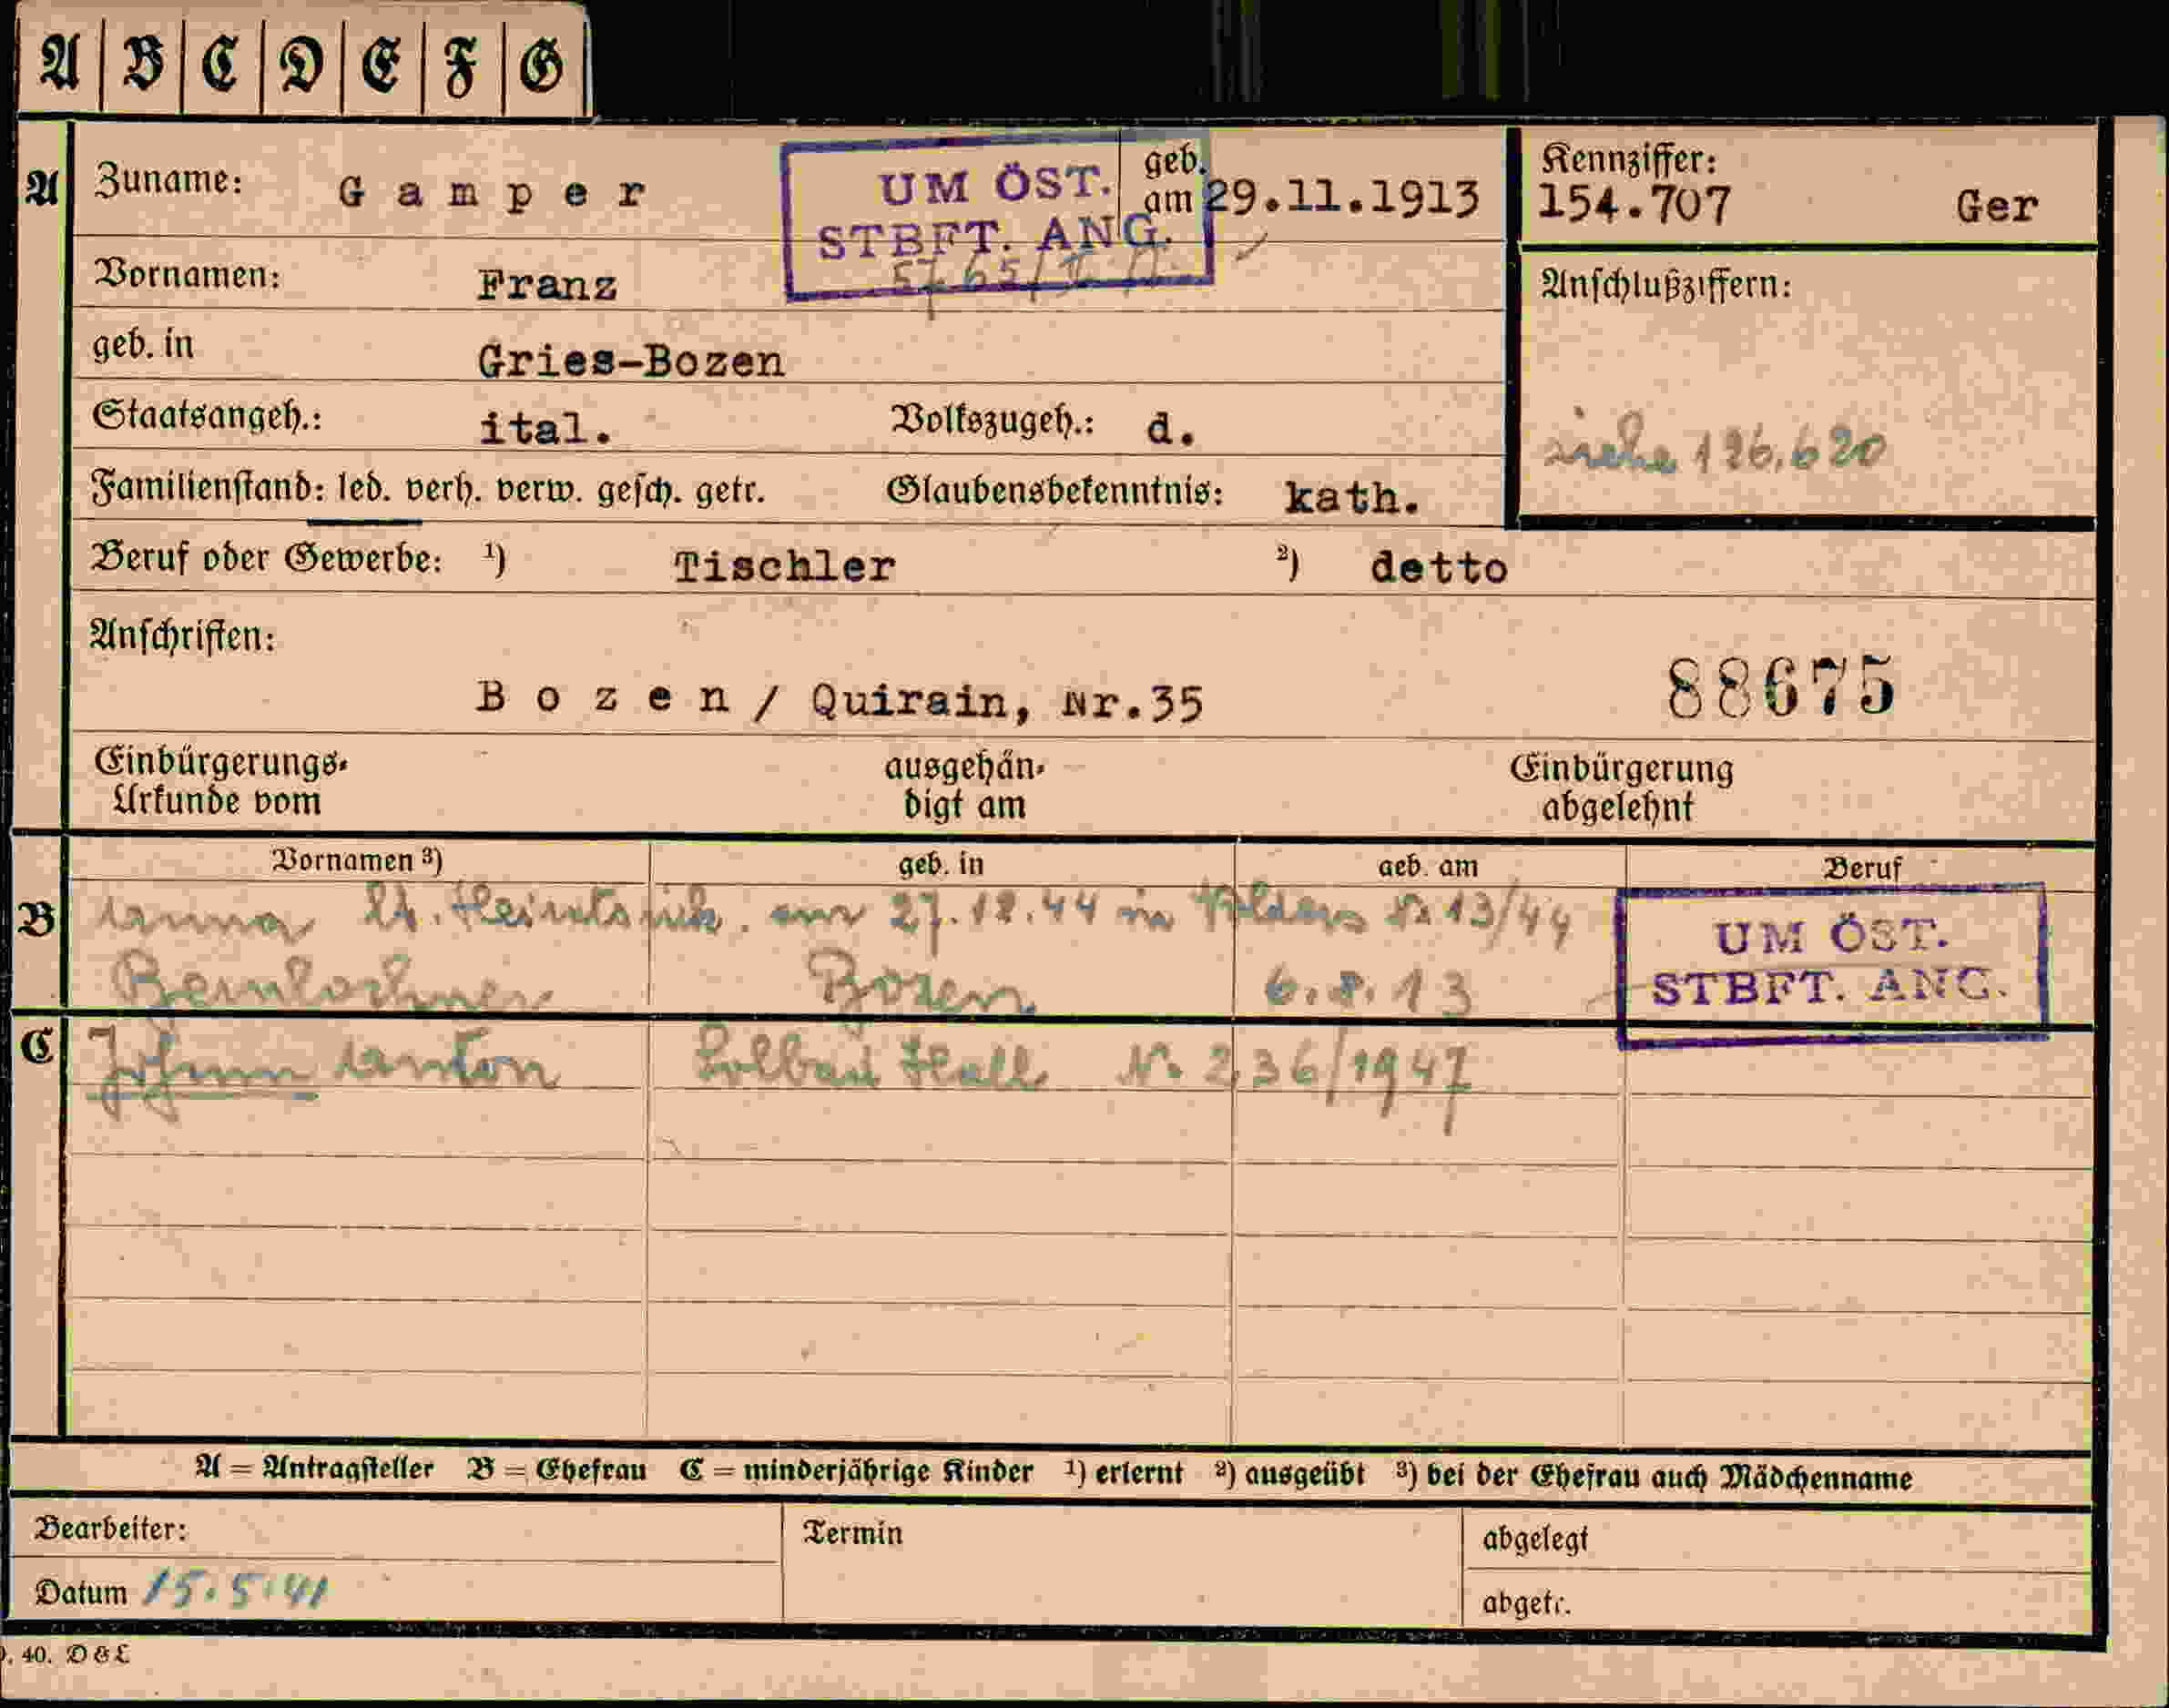 A B C D E F G
A Zuname: Gamper geb. am 29.11.1913 Kennziffer: 154.707 Ger
UM ÖST.
STBFT. ANG.
Vornamen: Franz Anschlußziffern:
geb. in Gries-Bozen
Staatsangeh.: ital. Volkszugeh.: d.
siehe 126.620
Familienstand: led. verh. verw. gesch. getr. Glaubensbekenntnis: kath.
Beruf oder Gewerbe: ¹) Tischler ²) detto
Anschriften:
Bozen / Quirain, Nr.35 88675
Einbürgerungs-Urkunde vom ausgehändigt am Einbürgerung abgelehnt
Vornamen ³) geb. in geb. am Beruf
B Anna lt. am 27.12.44 in Volders No 13/44
UM ÖST.
Bozen 6.8.13
STBFT. ANG.
C Johann Anton Solbad Hall Nr. 236/1947
A = Antragsteller B = Ehefrau C = minderjährige Kinder ¹) erlernt ²) ausgeübt ³) bei der Ehefrau auch Mädchenname
Bearbeiter: Termin abgelegt
Datum 15.5.41 abgetr.
40. D & L